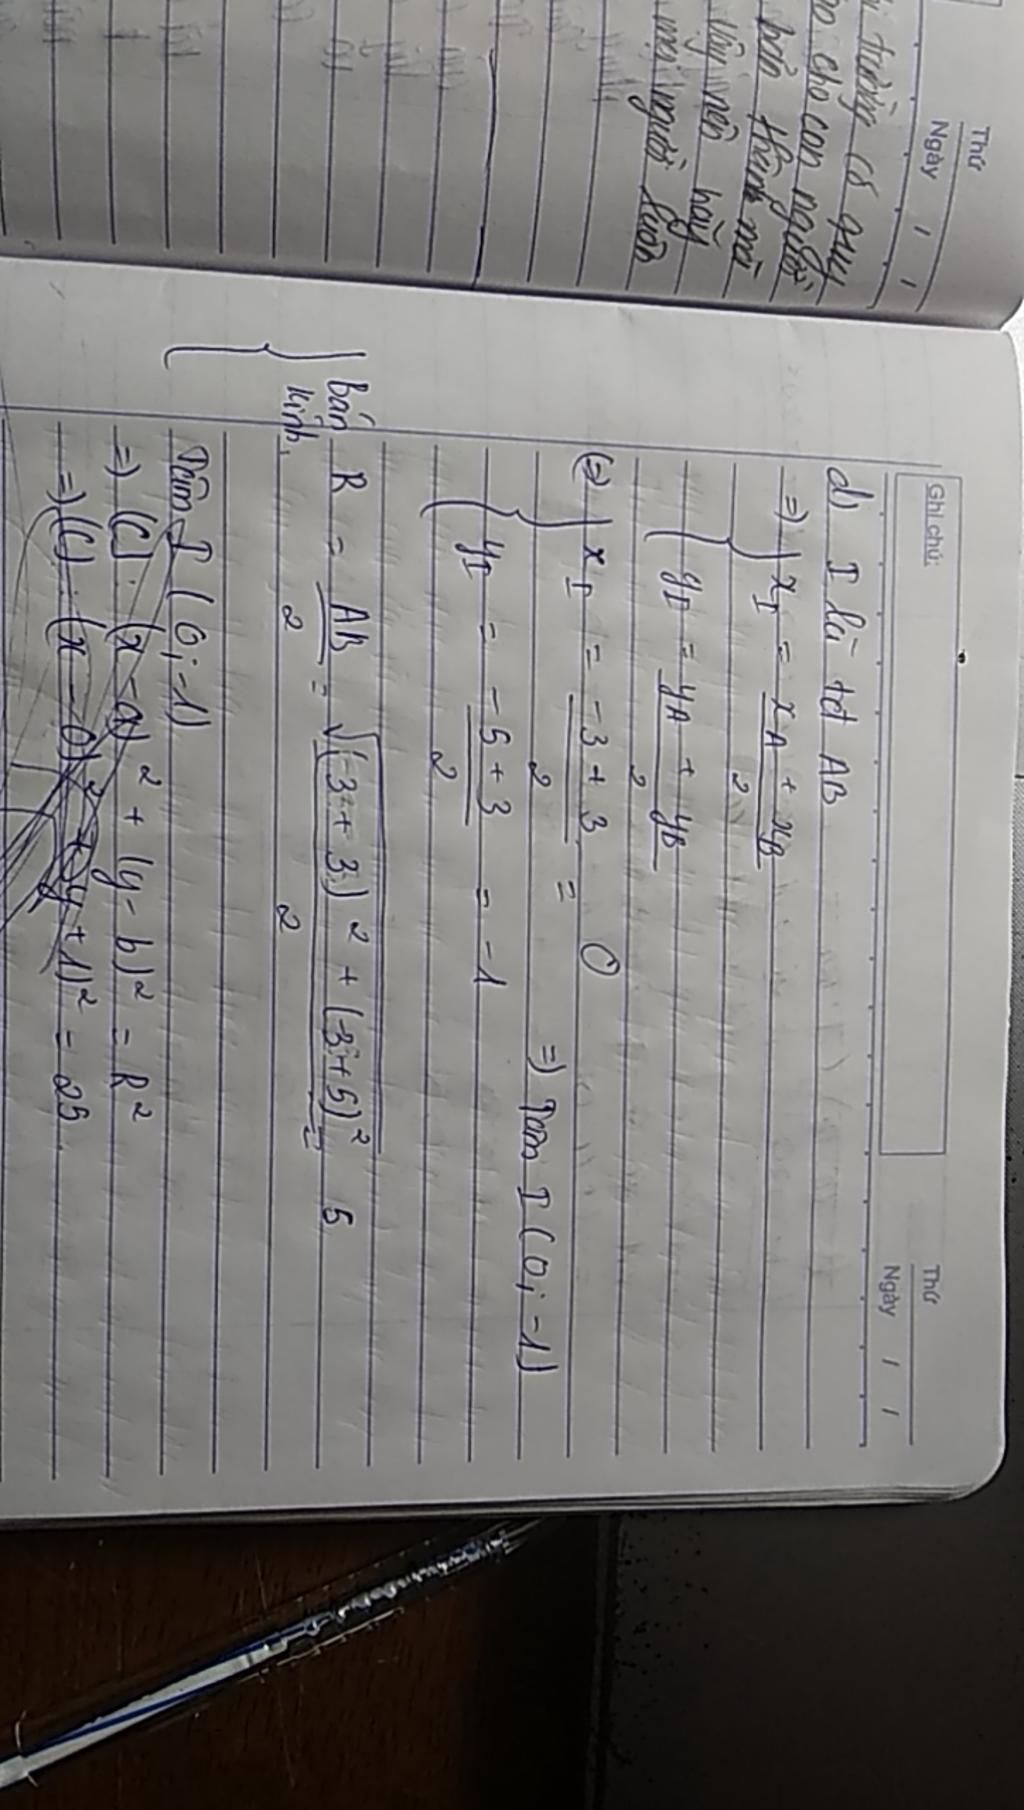 Thứ
Ngày / /
tưởng có quy
cho con người
hơn
Vậy nên hãy
mọi người luôn
Ghi chú:
Thứ
Ngày / /
d) I là td AB
=> { x_I = (x_A + x_B)/2
y_I = (y_A + y_B)/2
(=> { x_I = (-3 + 3)/2 = 0
=> Tam I (0; -1)
y_I = (-5 + 3)/2 = -1
Bán kính R = AB/2 = √((-3 + 3)² + (-3 + 5)²)/2 = 5
Tâm I (0; -1)
=> (C): (x - a)² + (y - b)² = R²
=> (C): (x - 0)² + (y + 1)² = 25